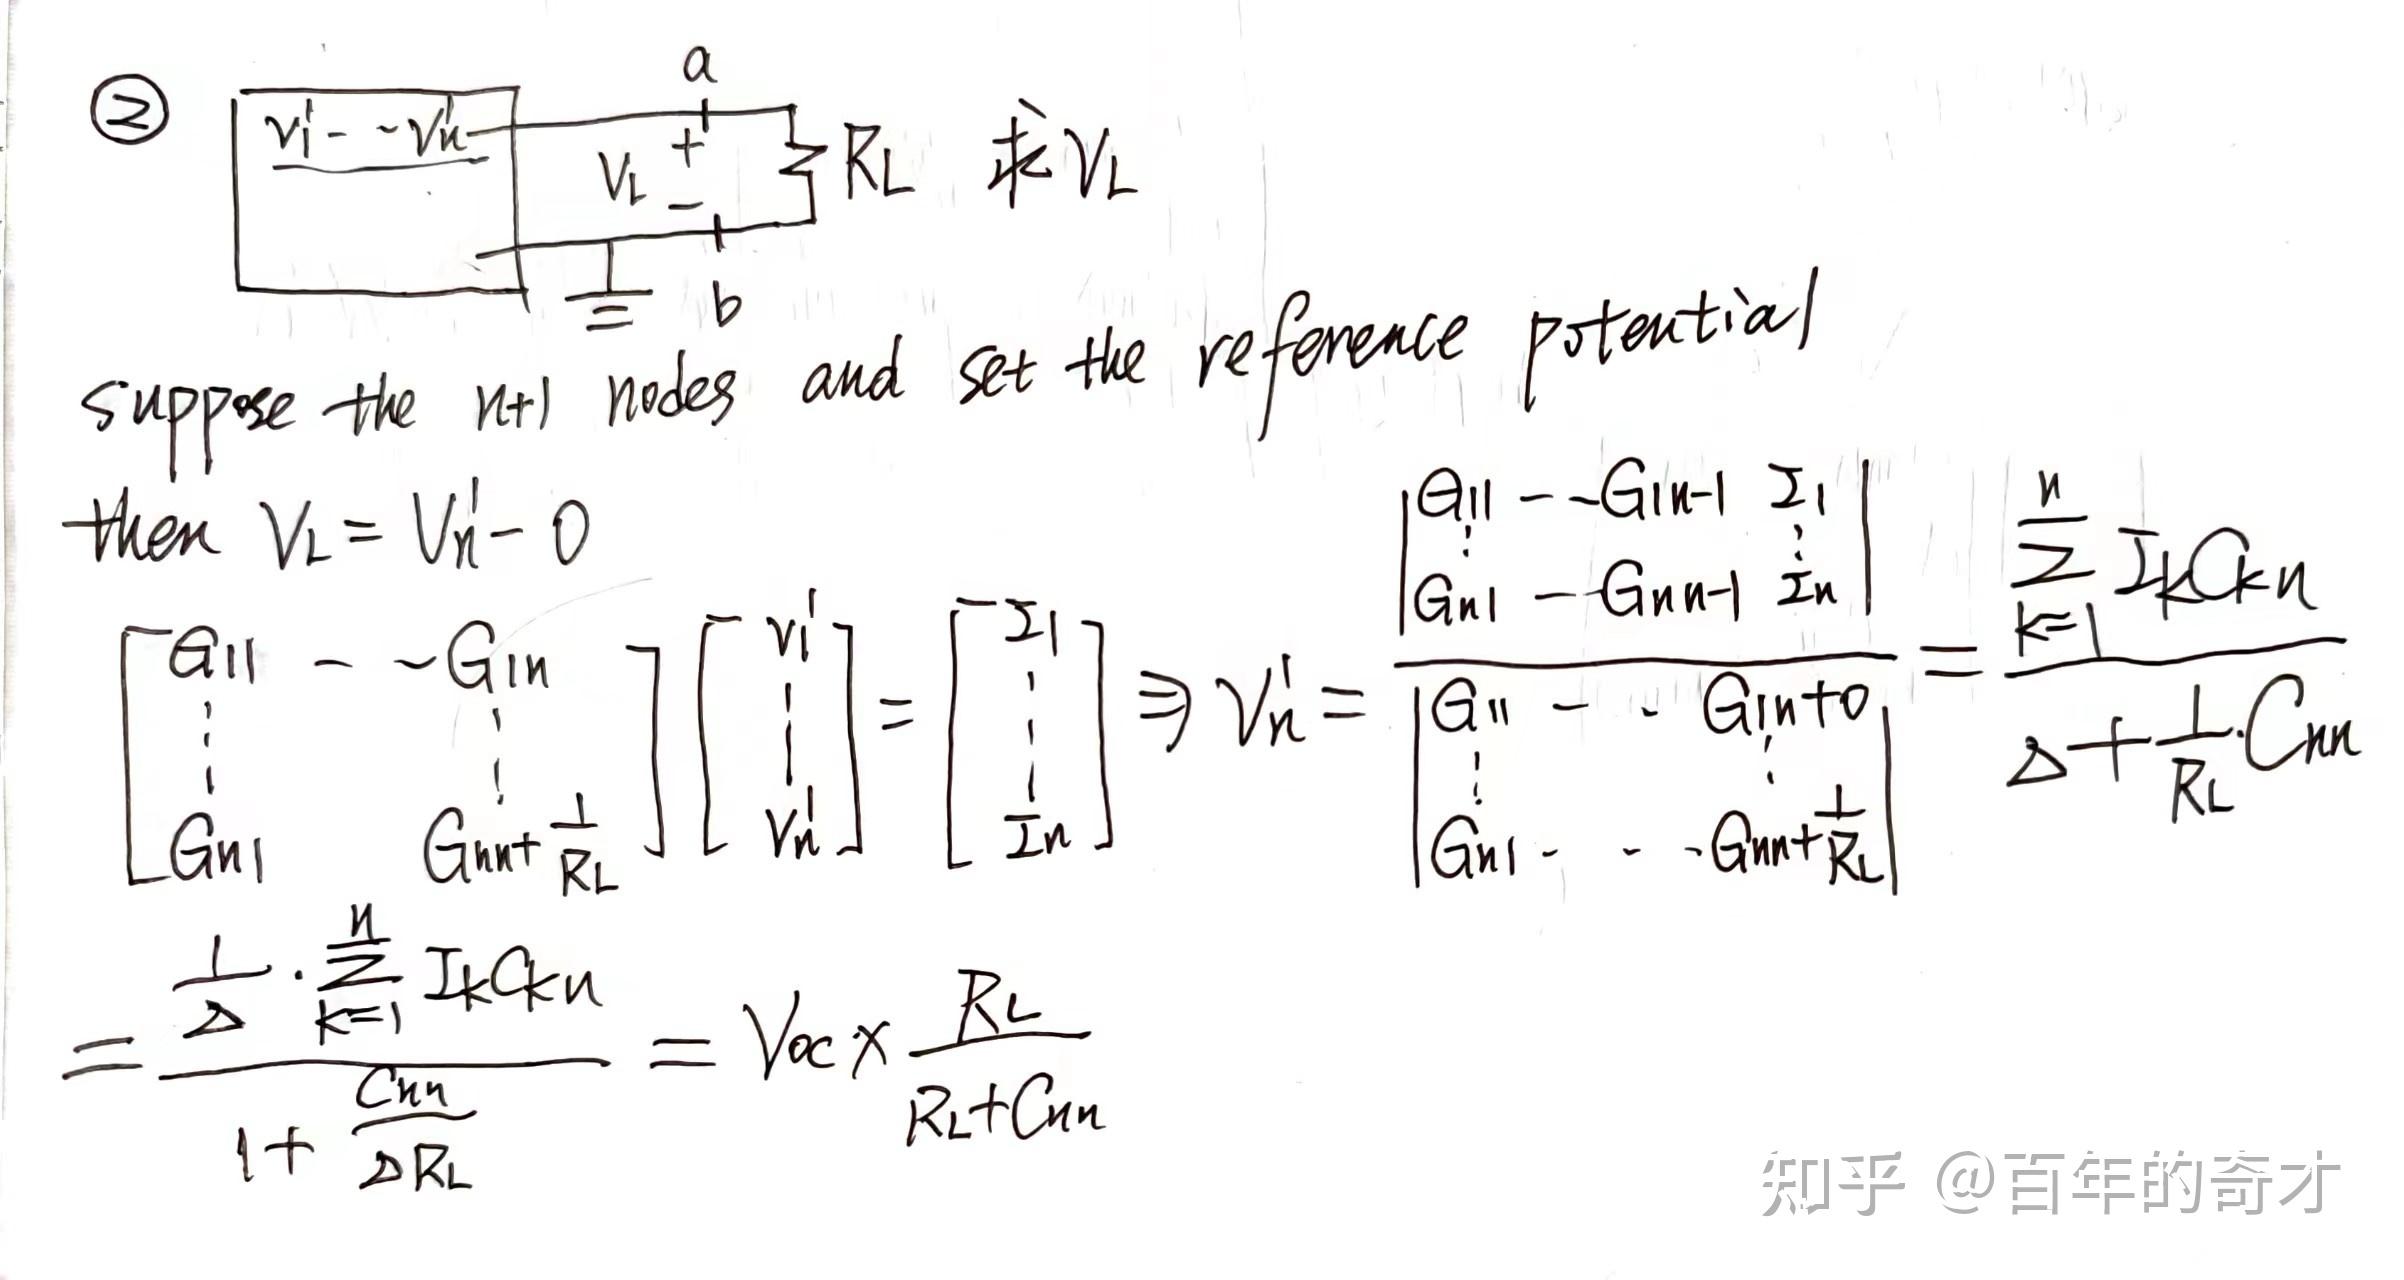 ② V1' - - Vn' a
VL + - RL 求VL
b
suppose the n+1 nodes and set the reference potential
then VL = Vn' - 0
[G11 - - G1n ⋮ ⋮ Gn1 Gnn+1/RL] [V1' ⋮ Vn'] = [I1 ⋮ In] ⇒ Vn' = |G11 - - G1n-1 I1 ⋮ ⋮ Gn1 - - Gnn-1 In| / |G11 - - G1n+0 ⋮ ⋮ Gn1 - - - Gnn+1/RL| = ∑(k=1→n) IkCkn / (Δ + 1/RL·Cnn)
= (1/Δ · ∑(k=1→n) IkCkn) / (1 + Cnn/(ΔRL)) = Voc × RL/(RL+Cnn)
知乎 @百年的奇才